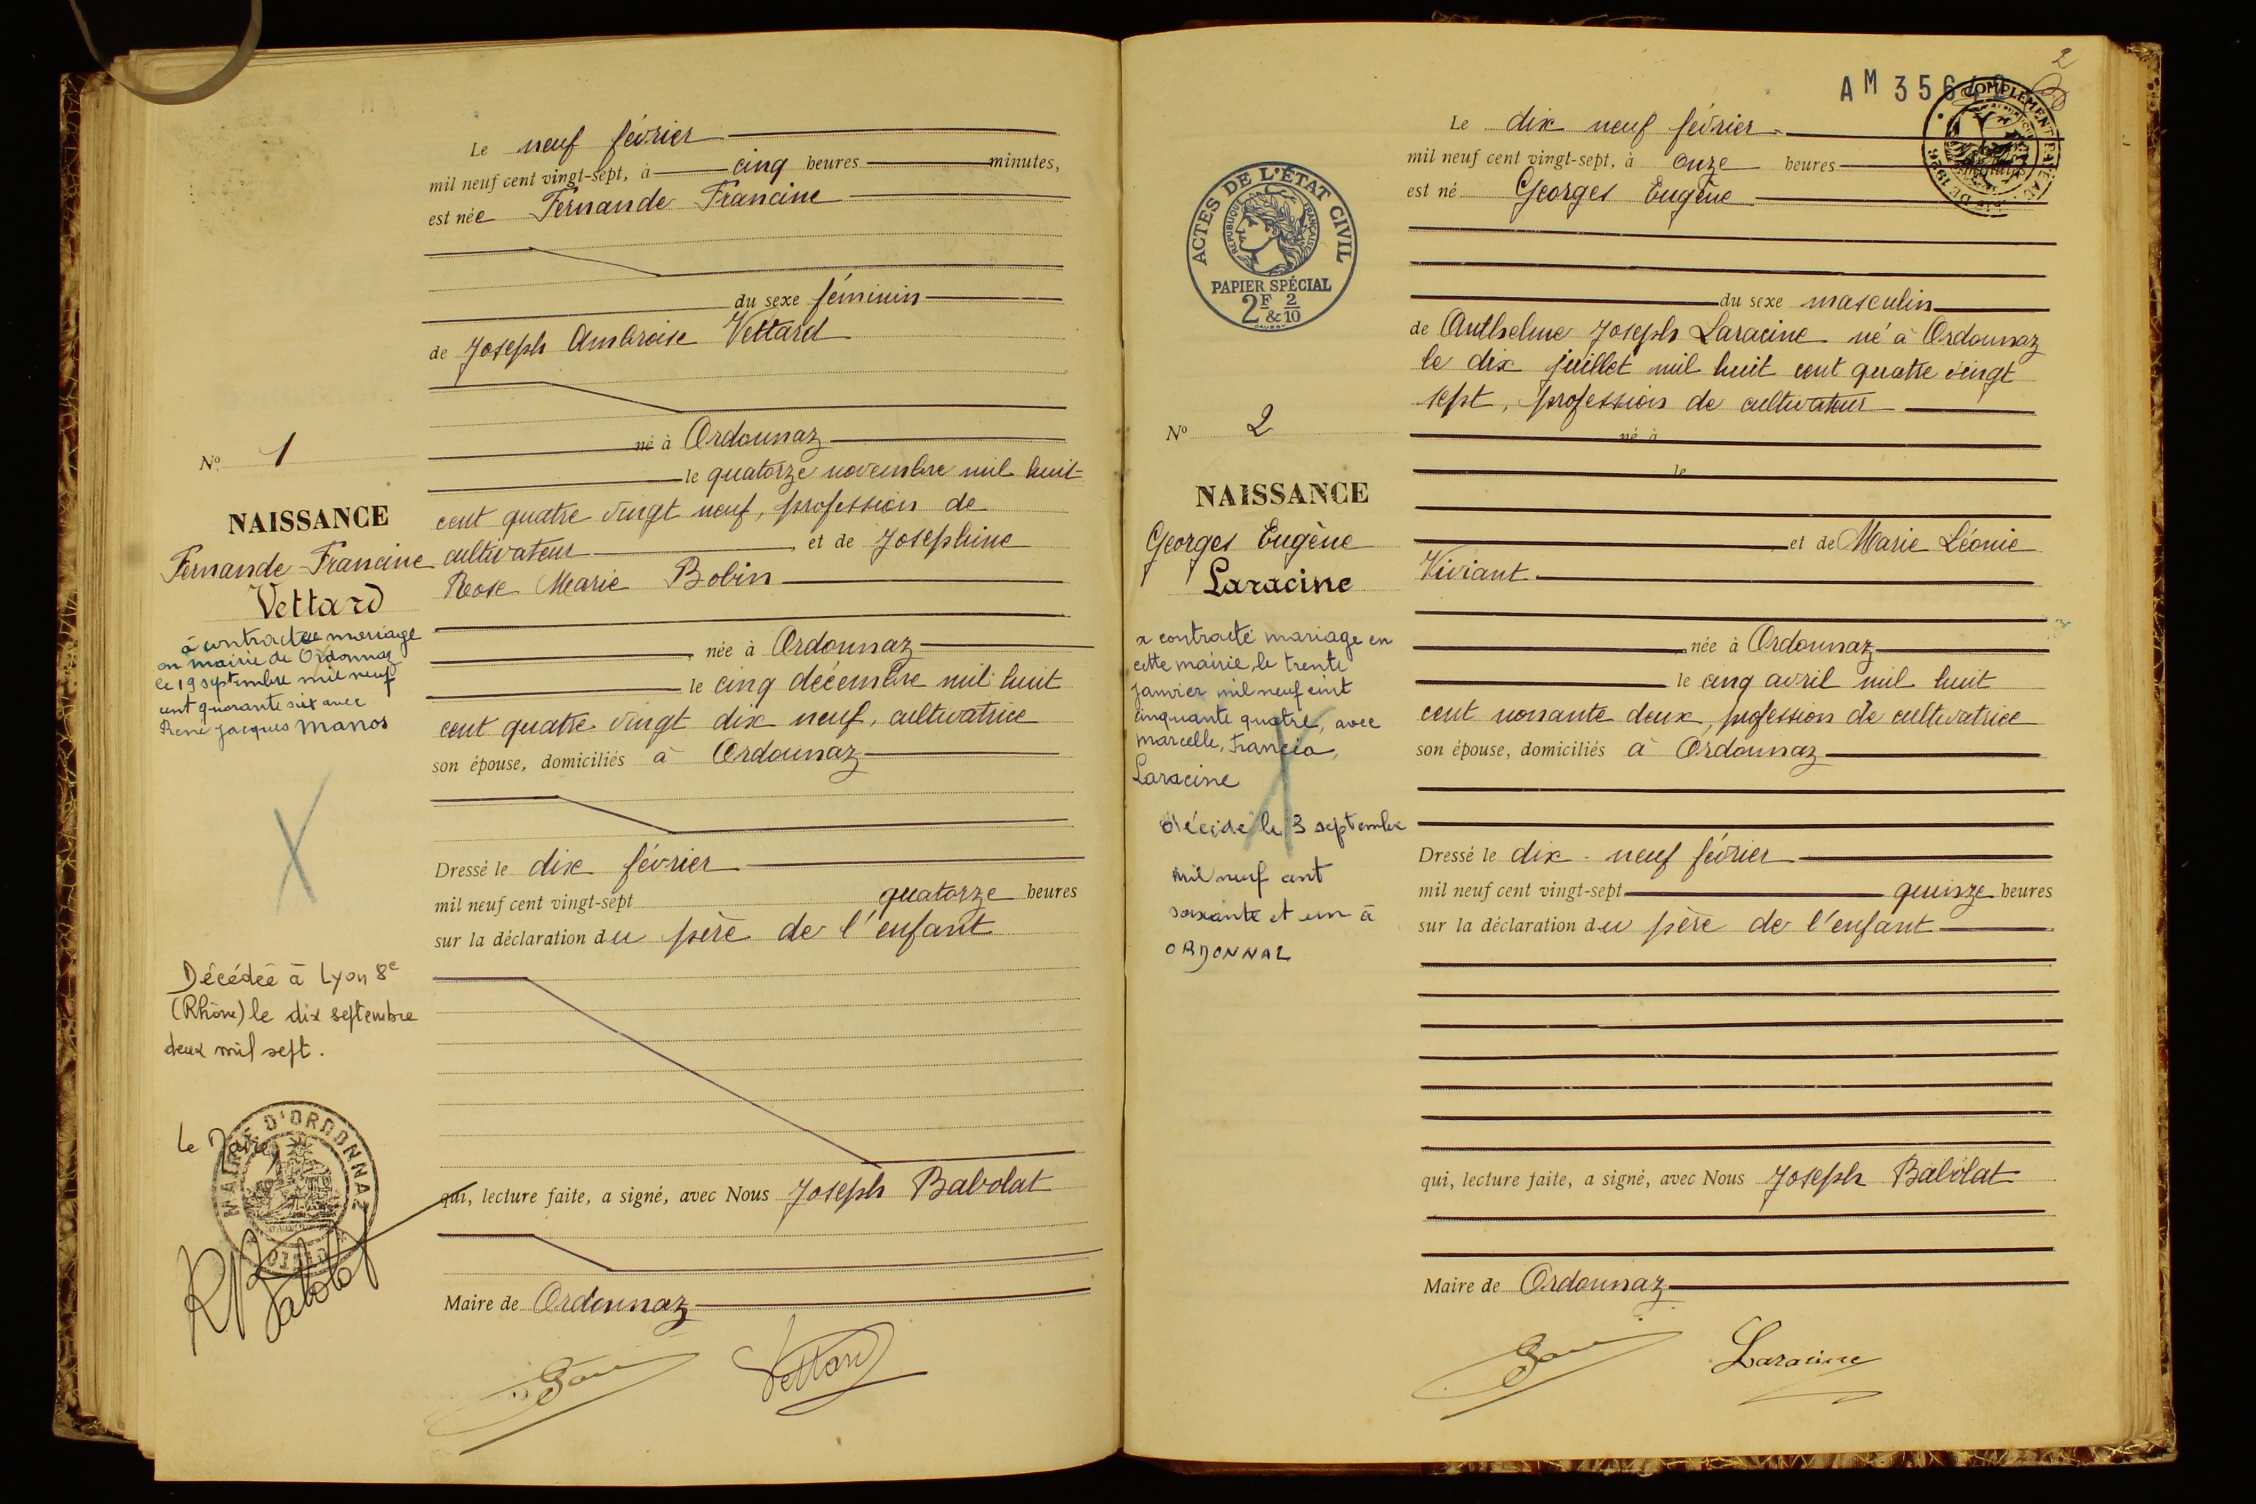 Le neuf février
mil neuf cent vingt-sept, à cinq heures minutes,
est née Fernande Francine
du sexe féminin
de Joseph Ambroise Vettard
né à Ordonnaz
le quatorze novembre mil huit
cent quatre vingt neuf, profession de
cultivateur et de Joséphine
Rose Marie Bobin
née à Ordonnaz
le cinq décembre mil huit
cent quatre vingt dix neuf, cultivatrice
son épouse, domiciliés à Ordonnaz
Dressé le dix février
mil neuf cent vingt-sept quatorze heures
sur la déclaration du père de l'enfant
qui, lecture faite, a signé, avec Nous Joseph Babolat
Maire de Ordonnaz
Vettard
No 1
NAISSANCE
Fernande Francine
Vettard
à contractée mariage
en mairie de Ordonnaz
le 19 septembre mil neuf
cent quarante six avec
René Jacques Manos
Décédée à Lyon 8e
(Rhône) le dix septembre
deux mil sept.
Le Maire,
MAIRIE D'ORDONNAZ
RBabolat
2
AM 356
COMPLÉMENT
Le dix neuf février
mil neuf cent vingt-sept, à onze heures minutes
est né Georges Eugène
du sexe masculin
de Anthelme Joseph Laracine né à Ordonnaz
le dix juillet mil huit cent quatre vingt
sept, profession de cultivateur
né à
le
et de Marie Léonie
Viviant
née à Ordonnaz
le cinq avril mil huit
cent nonante deux, profession de cultivatrice
son épouse, domiciliés à Ordonnaz
Dressé le dix-neuf février
mil neuf cent vingt-sept quinze heures
sur la déclaration du père de l'enfant
qui, lecture faite, a signé, avec Nous Joseph Babolat
Maire de Ordonnaz
Laracine
ACTES DE L'ÉTAT CIVIL
RÉPUBLIQUE FRANÇAISE
PAPIER SPÉCIAL
2F & 2/10
No 2
NAISSANCE
Georges Eugène
Laracine
a contracté mariage en
cette mairie, le trente
janvier mil neuf cent
cinquante quatre, avec
Marcelle, Francia,
Laracine
décédé le 3 septembre
mil neuf cent
soixante et un à
ORDONNAZ